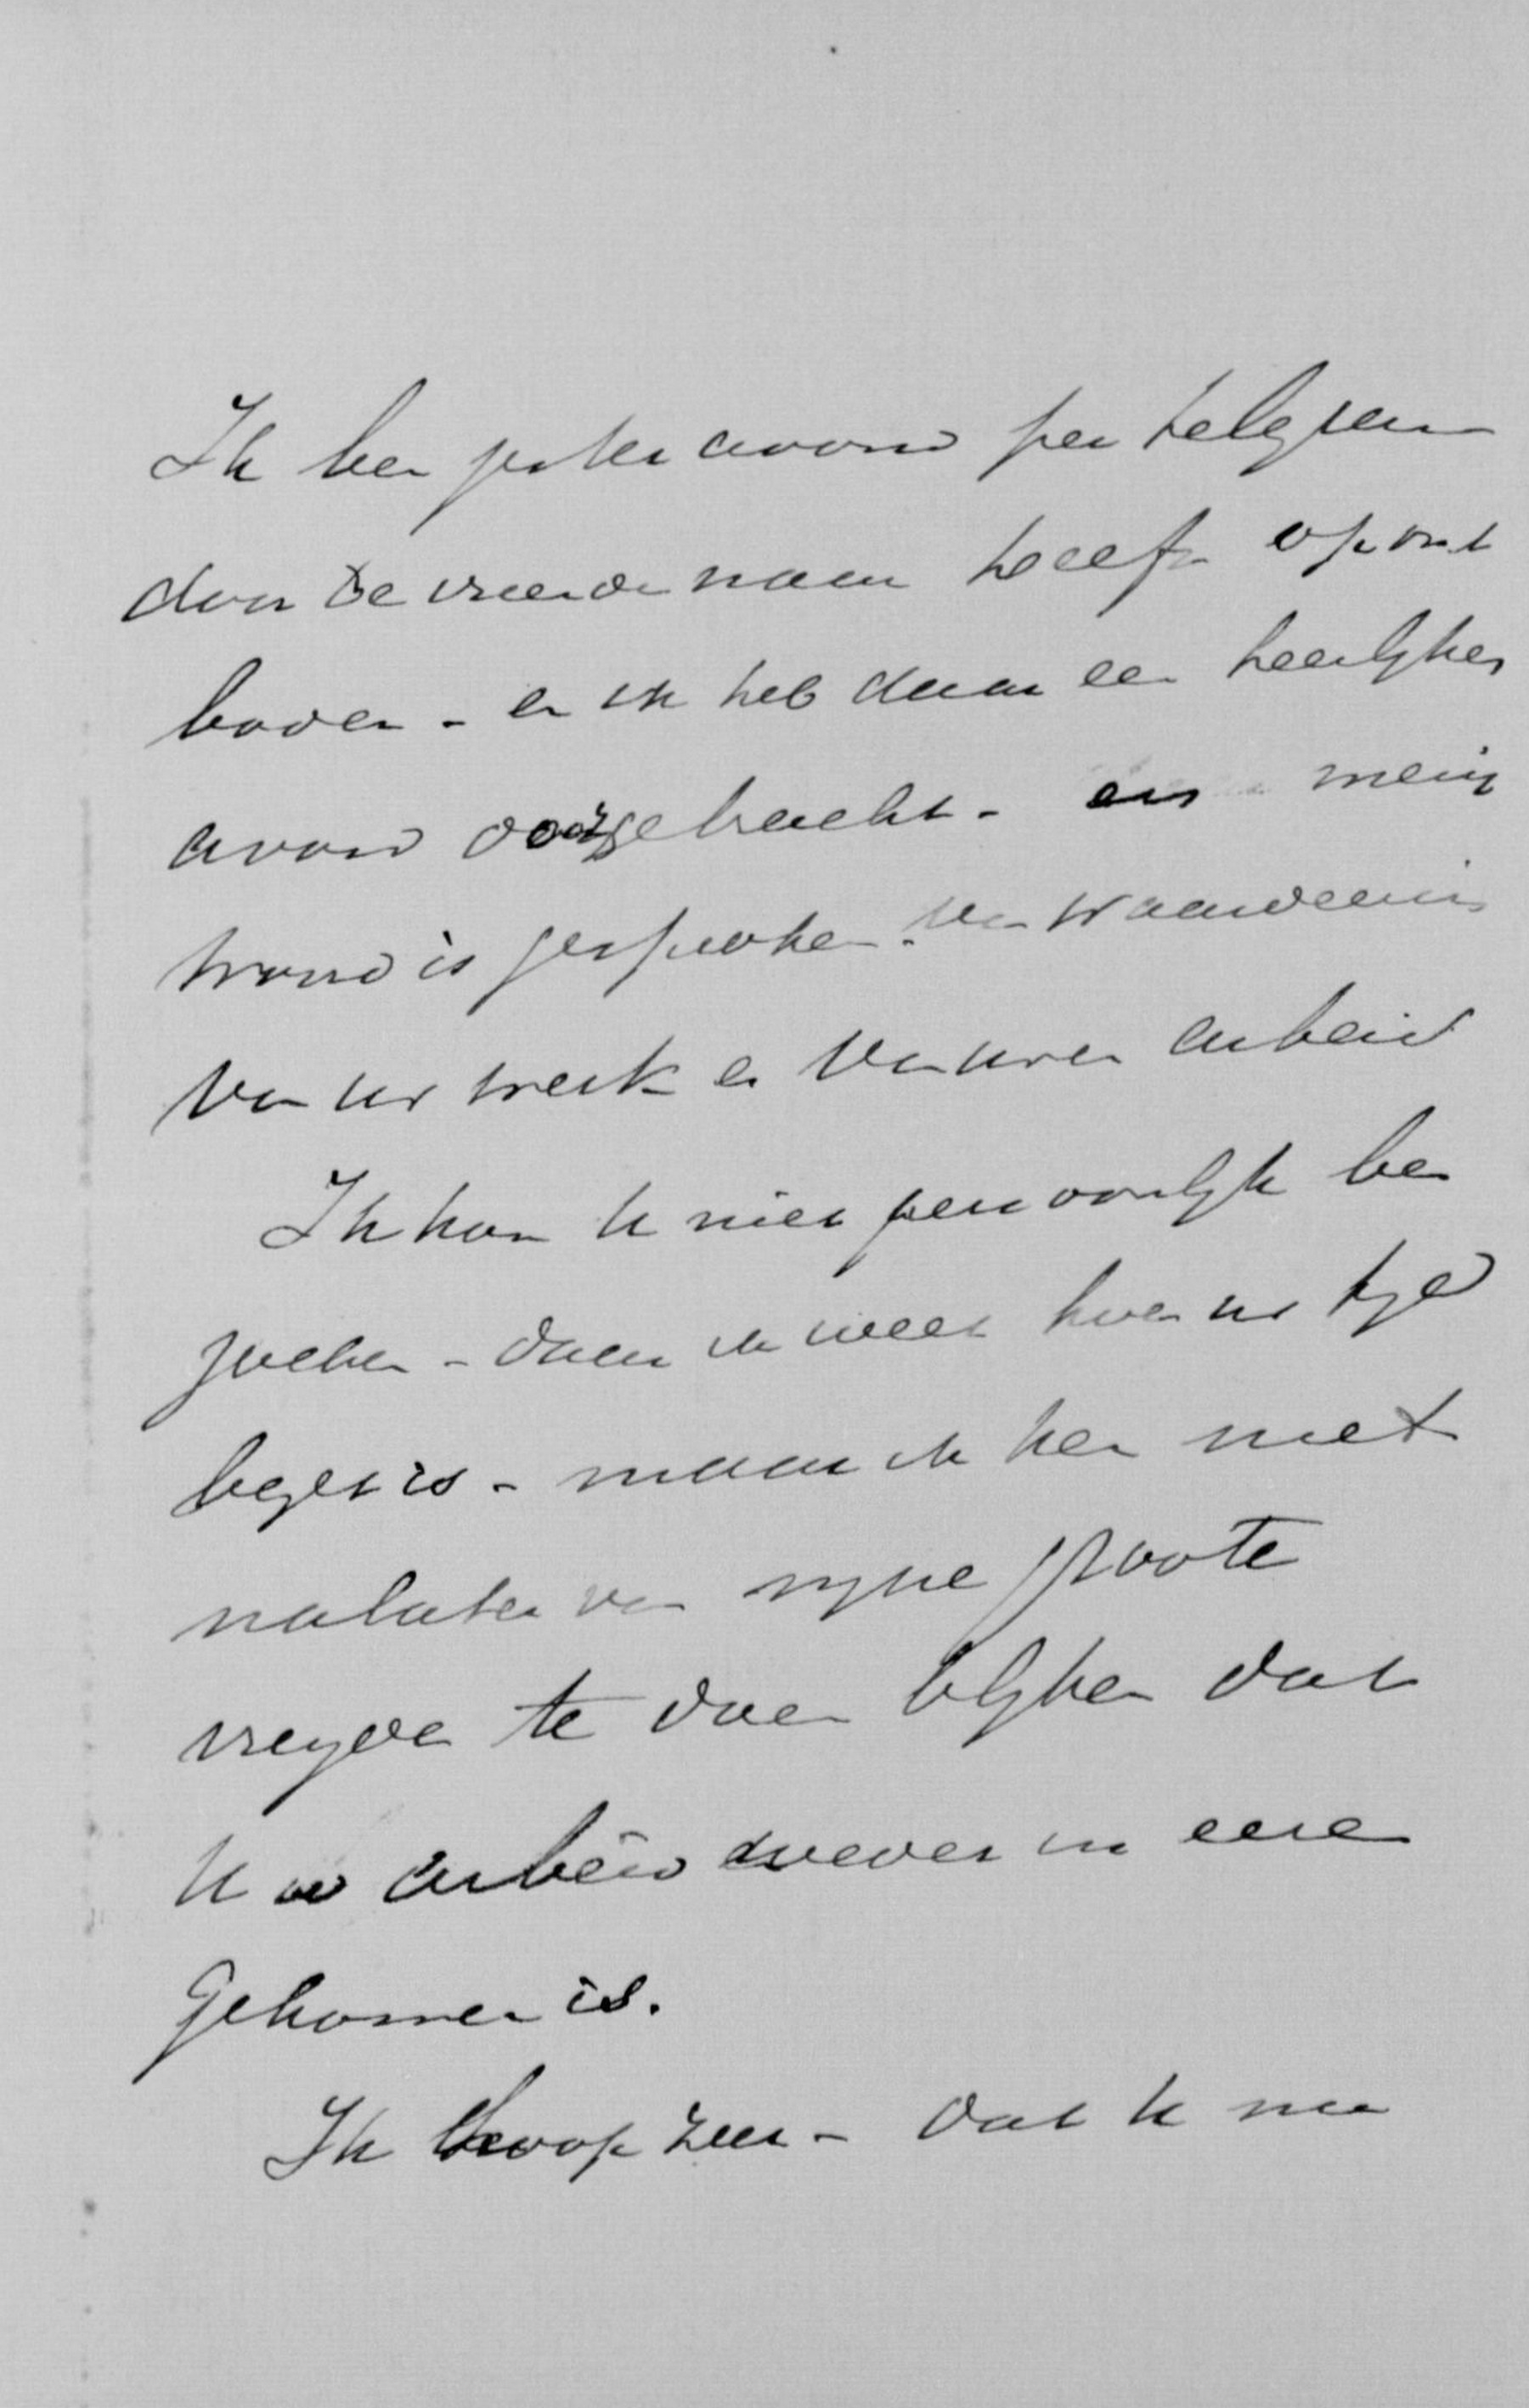 Ik ben gisteravond per telegram
door De vriend naar heeft op ont
boden - en ik heb daar een heerlijken
avond doorgebracht - en menig
woord is gesproken van waardeering
van uw werk en van uwen arbeid
Ik kan U niet persoonlijk be
zoeken - daar ik weet hoe uw tijd
bezet is - maar ik ken niet
nalaten van mijne groote
vreugde te doen blijken dat
Uw arbeid dwever in eere
gekomen is.
Ik hoop zeer - dat U nu